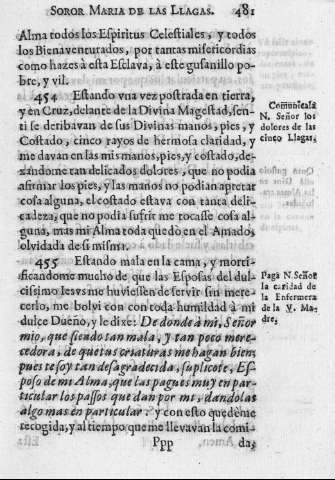 SOROR MARIA DE LAS LLAGAS. 481
Alma todos los Espiritus Celestiales, y todos
los Bienaventurados, por tantas misericordias
como hazes à esta Esclava, à este gusanillo po-
bre, y vil.
454 Estando vna vez postrada en tierra,
y en Cruz, delante de la Divina Magestad, sen-
ti se deribavan de sus Divinas manos, pies, y
Costado, cinco rayos de hermosa claridad, y
me davan en las mis manos, pies, y costado, de-
xandome tan delicados dolores, que no podia
afirmar los pies, y las manos no podian apretar
cosa alguna, el costado estava con tanta deli-
cadeza, que no podia sufrir me tocasse cosa al-
guna, mas mi Alma toda quedò en el Amado,
olvidada de si misma.
Comunicala
N. Señor los
dolores de las
cinco Llagas.
455 Estando mala en la cama, y morti-
ficandome mucho de que las Esposas del dul-
cissimo Iesvs me huviessen de servir sin mere-
cerlo, me bolvi con con toda humildad à mi
dulce Dueño, y le dixe: De donde à mi, Señor
mio, que siendo tan mala, y tan poco mere-
cedora, de que tus criaturas me hagan bien,
pues te soy tan desagradecida, suplicote, Es-
poso de mi Alma, que las pagues muy en par-
ticular los passos que dan por mi, dandolas
algo mas en particular: y con esto quedème
recogida, y al tiempo que me llevavan la comi-
Paga N. Señor
la caridad de
la Enfermera
de la V. Ma-
dre.
Ppp da,